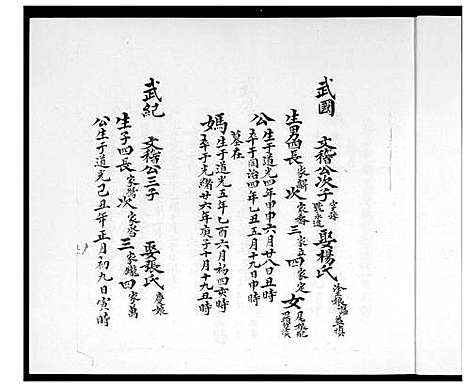 武國 文稽公次子 娶楊氏
生男四長家麟次家春三家立四家定 女
公生于道光四年甲申六月廿八日丑時
卒于同治四年乙丑五月十九日申時
墓在
媽生于道光五年乙酉六月初四亥時
卒于光緒廿六年庚子十月十九丑時
武紀 文稽公三子 娶張氏
生子四長家 次家 三家 四家萬
公生于道光己丑年正月初九日寅時